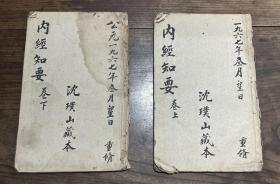 公元一九六七年叁月望日
沈璞山藏本
重脩
内經知要
卷下
一九六七年叁月望日
沈璞山藏本
重脩
内經知要
卷上